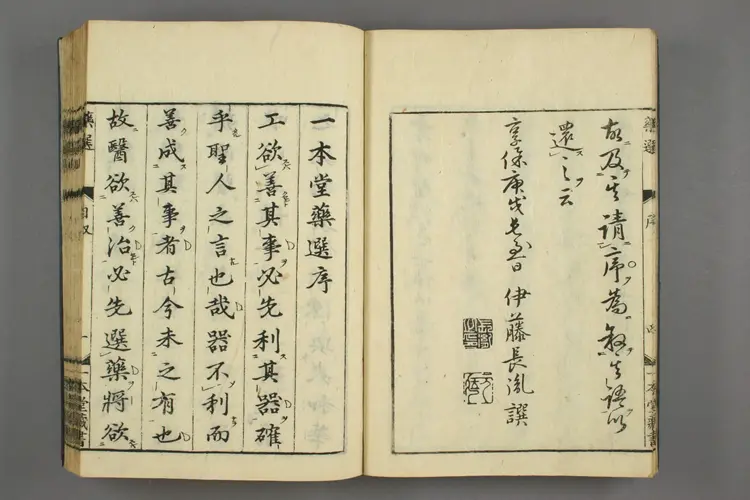 藥選
序
一本堂藏書
故及其請序爲敘其語以
還之云
享保庚戌長至日 伊藤長胤譔
一本堂藥選序
工欲善其事必先利其器確
乎聖人之言也哉器不利而
善成其事者古今未之有也
故醫欲善治必先選藥將欲
藥選
自叙
一
一本堂藏書